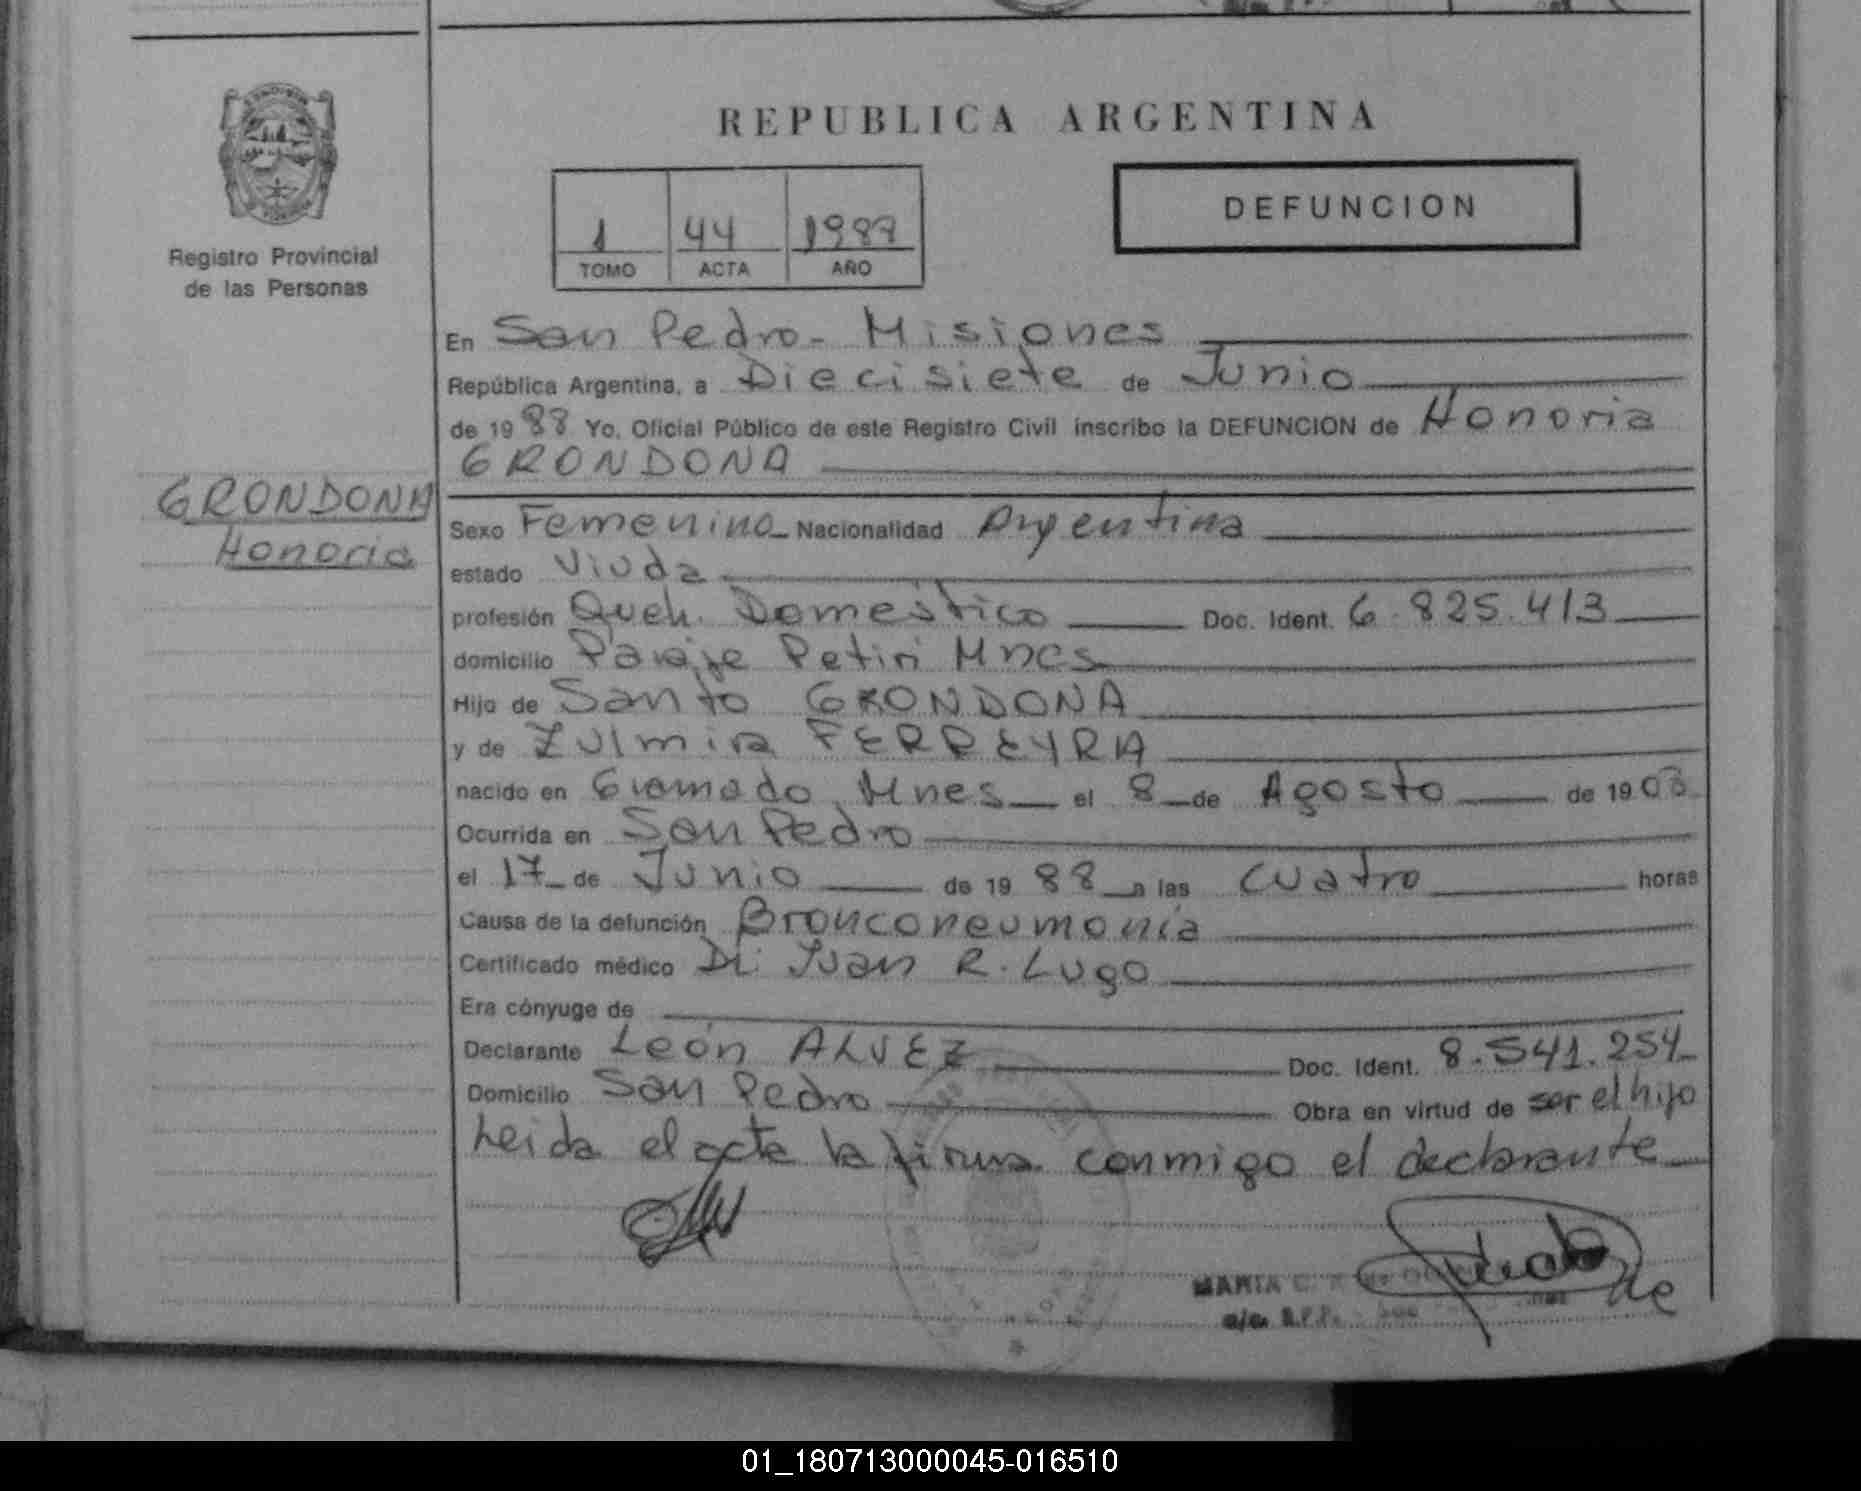 REPUBLICA ARGENTINA
Registro Provincial
de las Personas
1 44 1987
TOMO ACTA AÑO
DEFUNCION
GRONDONA
Honoria
En San Pedro - Misiones
República Argentina, a Diecisiete de Junio
de 1988 Yo, Oficial Público de este Registro Civil inscribo la DEFUNCION de Honoria
GRONDONA
Sexo Femenino Nacionalidad Argentina
estado Viuda
profesión Queh. Domestico Doc. Ident. 6.825.413
domicilio Paraje Petiri Mnes
Hijo de Santo GRONDONA
y de Zulmira FERREYRA
nacido en Gramado Mnes el 8 de Agosto de 1903
Ocurrida en San Pedro
el 17 de Junio de 1988 a las cuatro horas
Causa de la defunción Bronconeumonía
Certificado médico Dr. Juan R. Lugo
Era cónyuge de
Declarante León ALVEZ Doc. Ident. 8.541.254
Domicilio San Pedro Obra en virtud de ser el hijo
Leida el acta la firma conmigo el declarante
MARIA
01_180713000045-016510